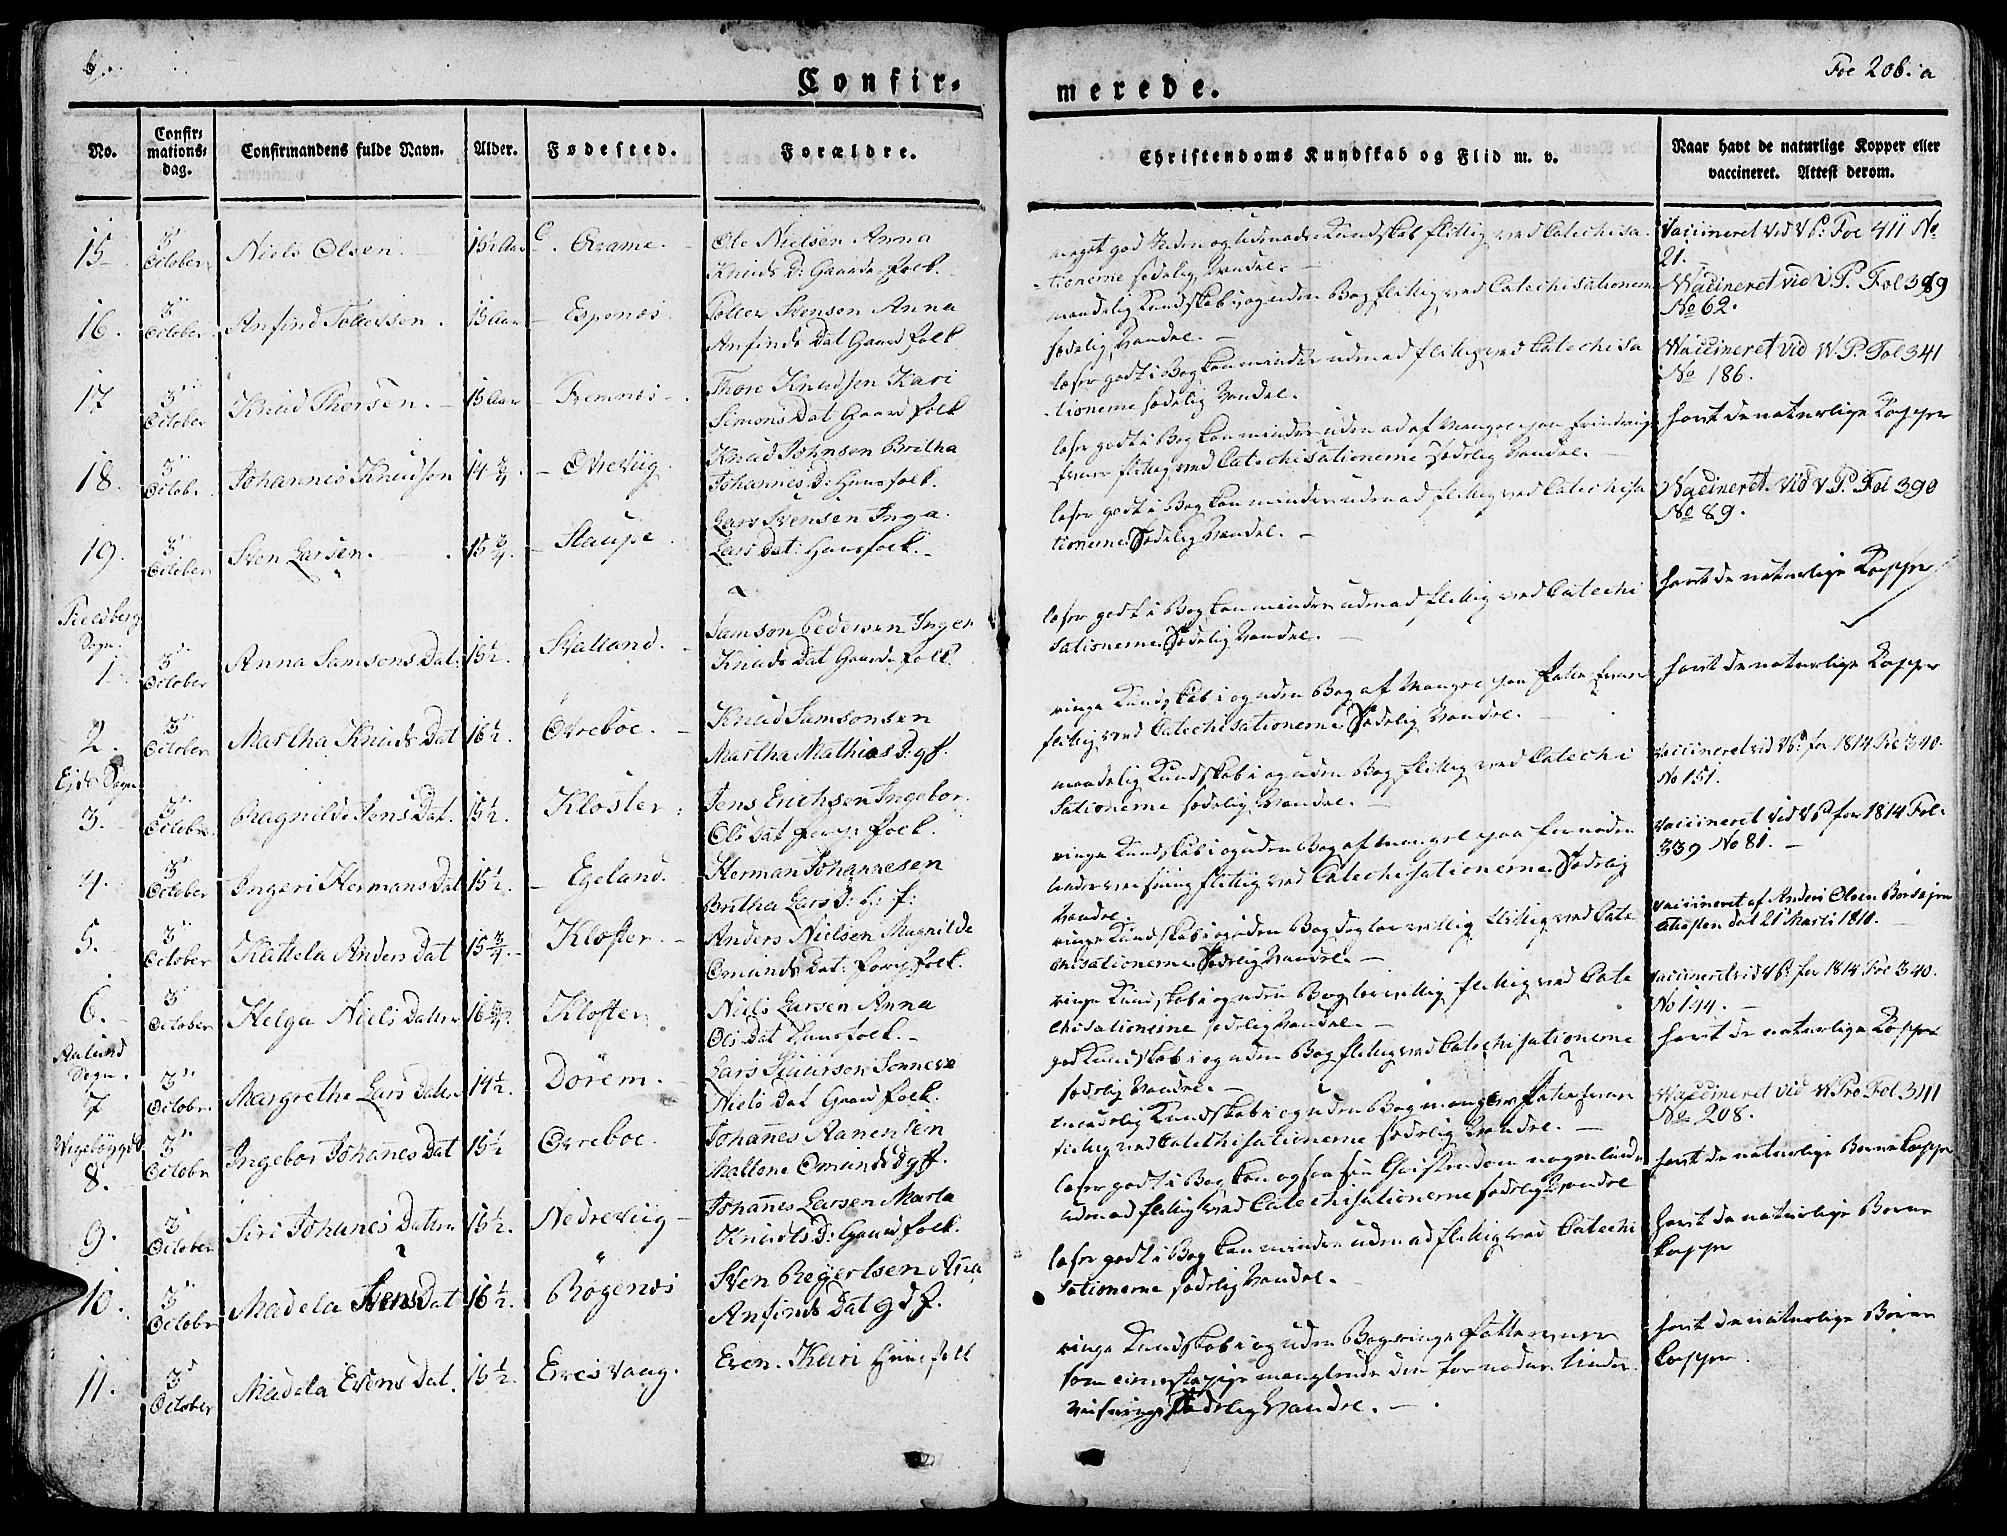 6.
Fol 206. a
Confir-
merede.
No.
Confir-
mations-
dag.
Confirmandens fulde Navn.
Alder.
Fødested.
Forældre.
Christendoms Kundskab og Flid m. v.
Naar havt de naturlige Kopper eller
vaccineret. Attest derom.
15 3 October Niels Olsen. 15½ Aar Ole Nielsen Anna
Knuds D: Gaardefolk.
meget god Inden og udenads Kundskab flittig ved Catechisa-
tionerne sædelig Vandel.
Vaccineret vid V P: Fol 411 No
21.
16. 3 October Anfind Tollefsen. 15 Aar Espenes. Anna
Anfinds Dat Gaardfolk
maadelig Kundskab i og uden Bog flittig ved Catechisationerne
sædelig Vandel.
Vaccineret vid V. P. Fol 389
No 62.
17 3 October Knud Thorsen. 15 Aar Fremnes Thore Knudsen Kari
Simons Dat Gaardfolk
læser godt i Bog kan mindre udenad flittig ved Catechisa
tionerne sædelig Vandel.
Vaccineret vid V. P. Fol 341
No 186.
18. 3 Octobr. Johannes Knudsen 14 3/4. Knud Johnsen Britha
Johannes D: Huusfolk.
læser godt i Bog kan mindre udenad af Mangel paa
flittig ved Catechisationerne sædelig Vandel.
havt de naturlige Kopper
19. 3 October Sven Larsen. 15 3/4. Staupe Lars Svensen Inga
Lars Dat: Huusfolk.
læser godt i Bog kan mindre udenad flittig ved Catechisa
tionerne Sædelig Vandel.
Vaccineret vid V P. Fol 390
No 89.
Fieldberg
Sogn.
1 3 October Anna Samsons Dat. 15½. Samson Pedersen Inger
Knuds Dat Gaardefolk.
læser godt i Bog kan mindre udenad flittig ved Catechi
sationerne Sædelig Vandel.
havt de naturlige Kopper
2. 3 October Martha Knuds Dat 16½. Øvreboe. Knud Samsonsen
Martha Mathias D: gf.
ringe Kundskab i og uden Bog af Mangel paa
flittig ved Catechisationerne Sædelig Vandel.
havt de naturlige Kopper
Eids Sogn
3. 3 Octobr. Ragnilde Jens Dat. 15½. Kloster. Jens Erichsen Ingebor
Ols Dat folk.
maadelig Kundskab i og uden Bog flittig ved Catechi
sationerne sædelig Vandel.
vaccineret vid V P. for 1814 Fol 340.
No 151.
4. 3 October Ingeri Hermans Dat 15½. Egeland. Herman Johannesen
Britha Lars D: h: f:
ringe Kundskab i og uden Bog af Mangel paa fornøden
underviisning flittig ved Catechisationerne. Sædelig
Vandel.
vaccineret vid V P for 1814 Fol.
339 No 81.
5. 3 October Kattela Anders Dat 15 3/4. Kloster. Anders Nielsen Magnilde
Omunds Dat: folk.
ringe Kundskab i og uden Bog dog lærvillig flittig ved Cate
chisationerne Sædelig Vandel.
vaccineret af Anders Olsen
attesten dat 21 Marti 1810.
6. 3 October Helga Niels Datter 16 3/4 Kloster Niels Larsen Anna
Ols Dat Huusfolk.
ringe Kundskab i og uden Bog lærvillig flittig ved Cate
chisationerne sædelig Vandel.
vaccineret vid V P. for 1814 Fol 340.
No 144.
Aalund
Sogn.
7 3 Octobr. Margrethe Lars Datter 14½. Dørem. Lars Sonneve
Niels Dat Gaardfolk.
god Kundskab i og uden Bog flittig ved Catechisationerne
sædelig Vandel.
havt de naturlige Kopper
8. 3 Octobr Ingebor Johanes Dat 15½ Øvreboe. Johanes Aanensen
Mallene Omunds D gf.
maadelig Kundskab i og uden Bog
flittig ved Catechisationerne sædelig Vandel.
Vaccineret vid V Pr Fol 341
No 208.
9. 3 October Siri Johanes Datter 16½. Nedreviig Johanes Larsen Marta
Knuds D: Gaardfolk.
læser godt i Bog kan ogsaa sin Christendom nogenlunde
udenad flittig ved Catechisationerne sædelig Vandel
havt de naturlige Børnekopper
10. 3 October Madela Svens Dat 16½. Bøgenes Sven Anna
Anfinds Dat g d f.
læser godt i Bog kan mindre udenad flittig ved Catechi
sationerne sædelig Vandel.
havt de naturlige Børne
kopper
11. 3 October Madela Evens Dat. 16½. Eresvaag. Even. Kari Huusfolk
ringe Kundskab i og uden Bog ringe
som manglende den fornødne Under
viisning Sædelig Vandel.
havt de naturlige Børne
kopper.